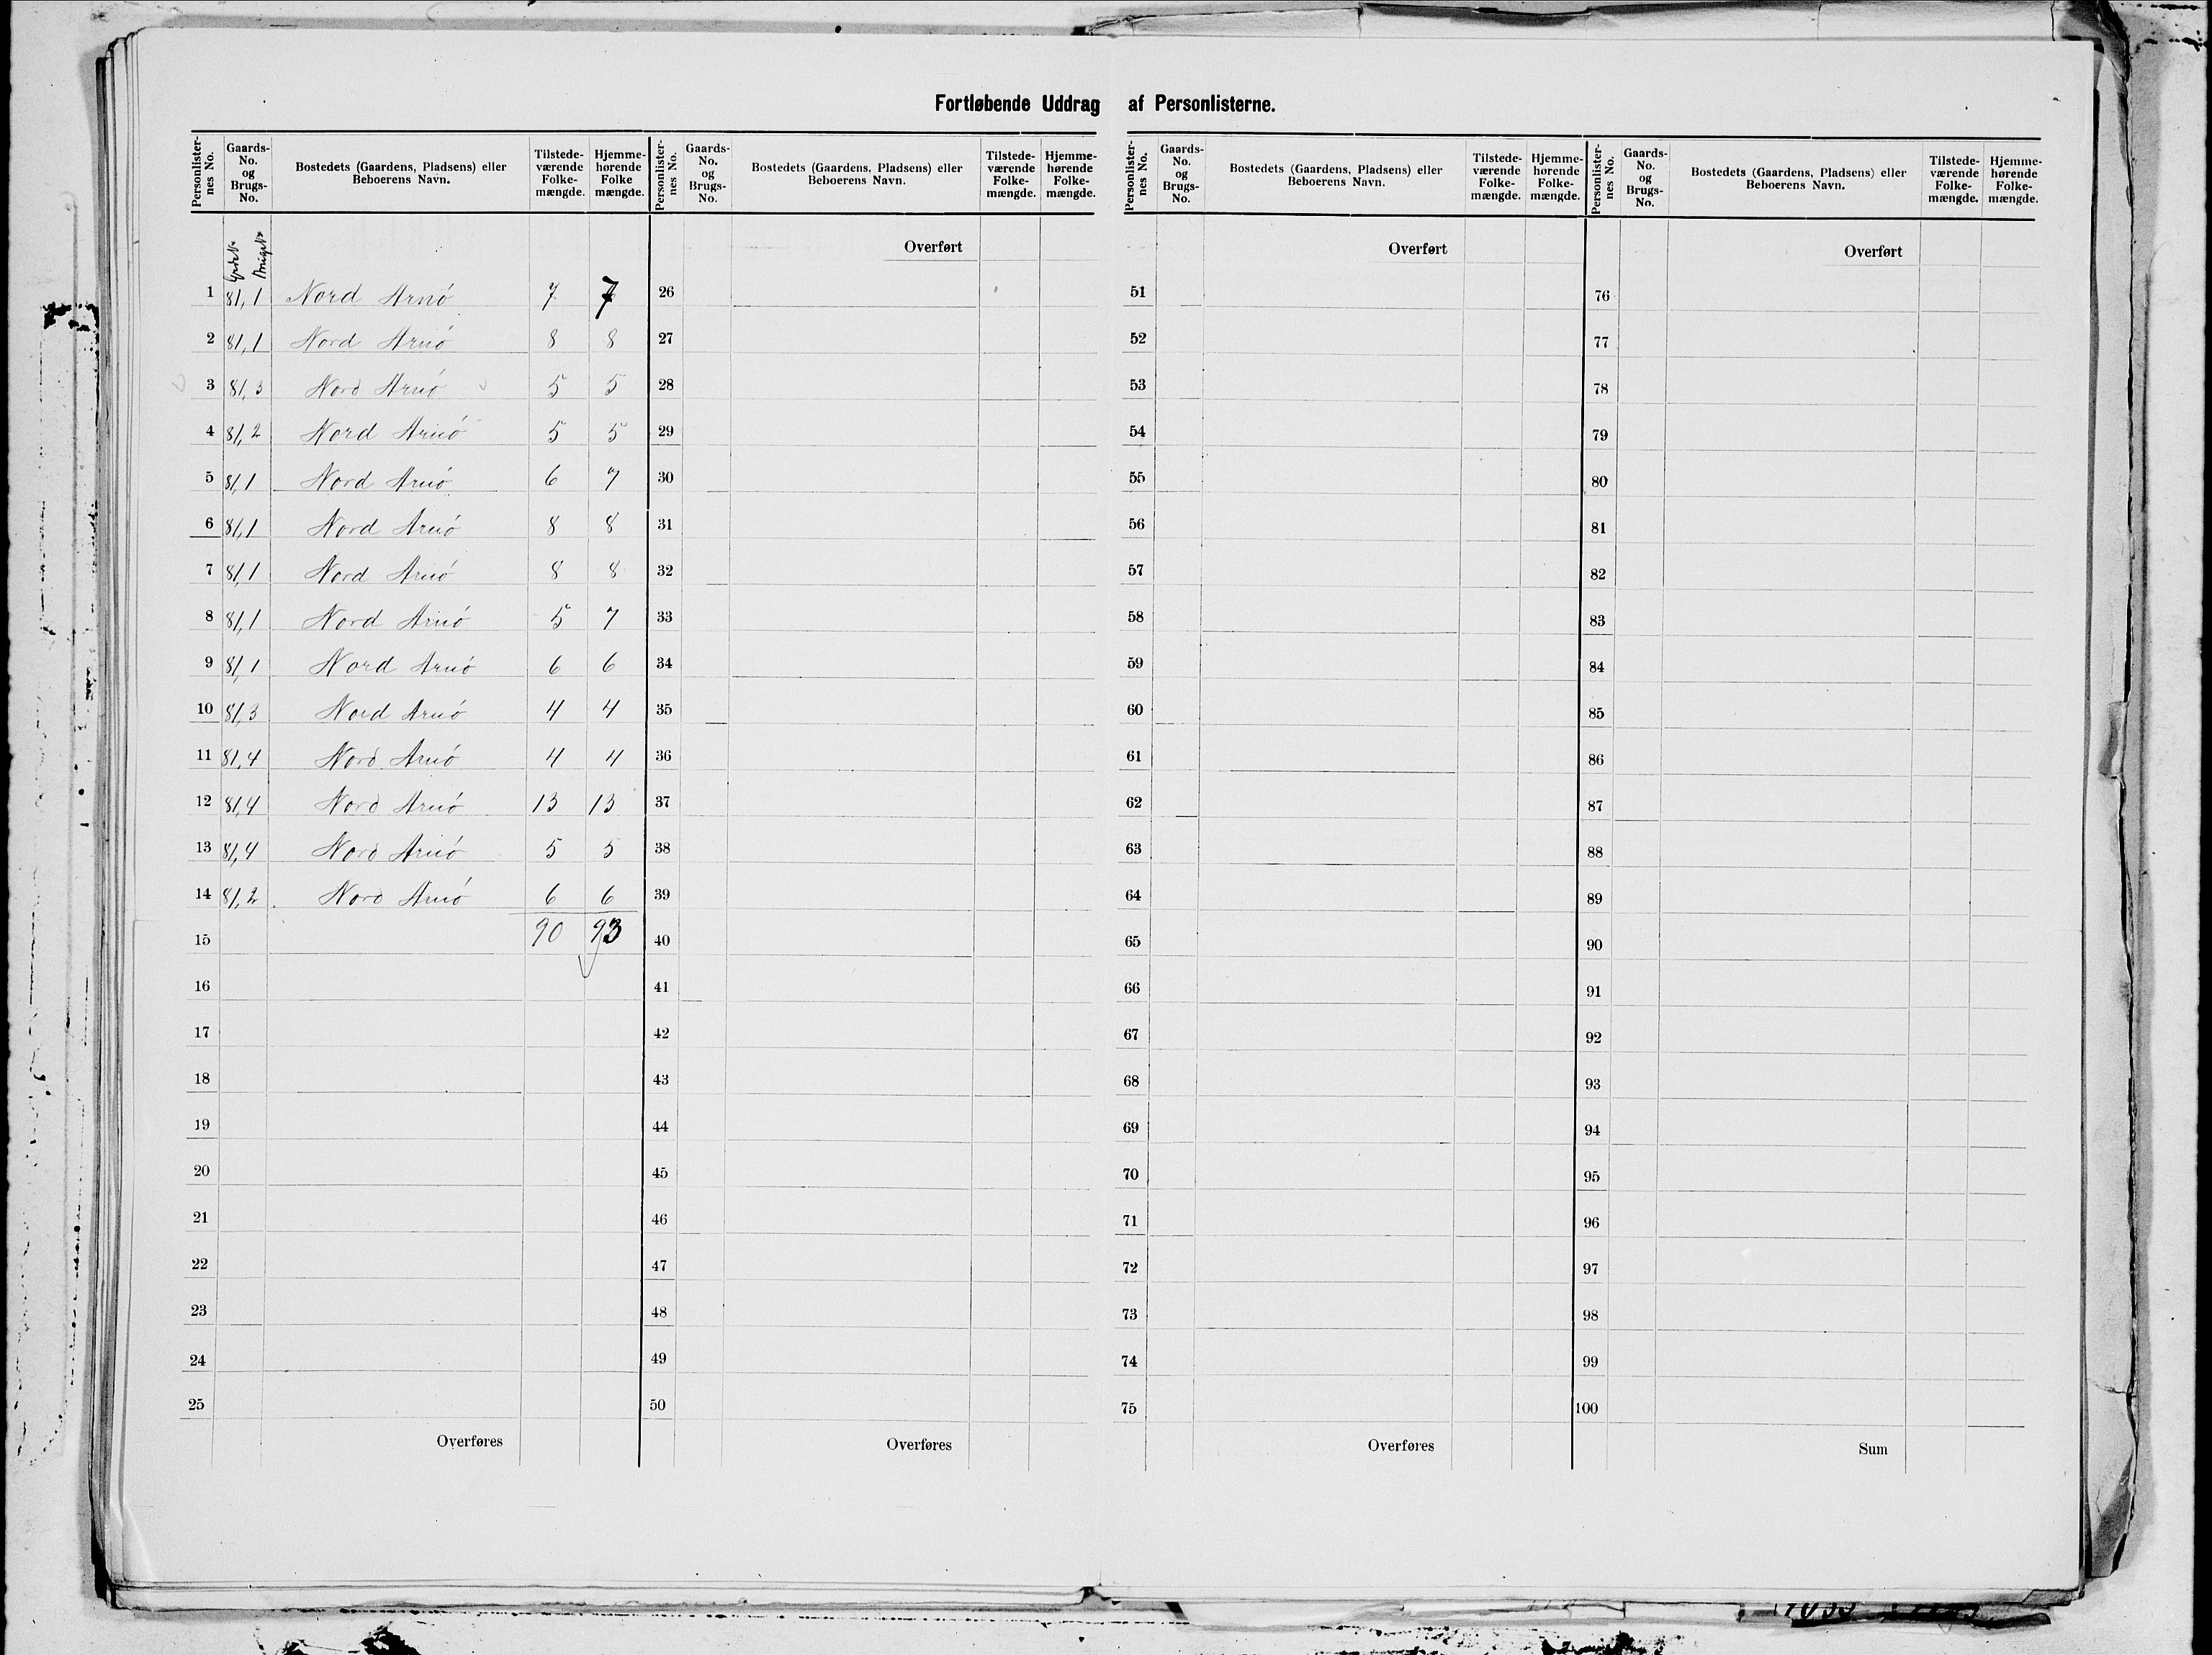 Fortløbende Uddrag af Personlisterne.
Personlister-nes No. Gaards-No. og Brugs-No. Bostedets (Gaardens, Pladsens) eller Beboerens Navn. Tilstede-værende Folke-mængde. Hjemme-hørende Folke mængde.
Personlister-nes No. Gaards-No. og Brugs-No. Bostedets (Gaardens, Pladsens) eller Beboerens Navn. Tilstede-værende Folke-mængde. Hjemme-hørende Folke-mængde.
Personlister-nes No. Gaards-No. og Brugs-No. Bostedets (Gaardens, Pladsens) eller Beboerens Navn. Tilstede-værende Folke-mængde. Hjemme-hørende Folke-mængde.
Personlister-nes No. Gaards-No. og Brugs-No. Bostedets (Gaardens, Pladsens) eller Beboerens Navn. Tilstede-værende Folke-mængde. Hjemme-hørende Folke-mængde.
1 81,1 Nord Arnö 7 7
2 81,1 Nord Arnö 8 8
3 81,3 Nord Arnö 5 5
4 81,2 Nord Arnö 5 5
5 81,1 Nord Arnö 6 7
6 81,1 Nord Arnö 8 8
7 81,1 Nord Arnö 8 8
8 81,1 Nord Arnö 5 7
9 81,1 Nord Arnö 6 6
10 81,3 Nord Arnö 4 4
11 81,4 Nord Arnö 4 4
12 81,4 Nord Arnö 13 13
13 81,4 Nord Arnö 5 5
14 81,2 Nord Arnö 6 6
15 90 93
16
17
18
19
20
21
22
23
24
25
Overføres
Overført
26
27
28
29
30
31
32
33
34
35
36
37
38
39
40
41
42
43
44
45
46
47
48
49
50
Overføres
Overført
51
52
53
54
55
56
57
58
59
60
61
62
63
64
65
66
67
68
69
70
71
72
73
74
75
Overføres
Overført
76
77
78
79
80
81
82
83
84
85
86
87
88
89
90
91
92
93
94
95
96
97
98
99
100
Sum